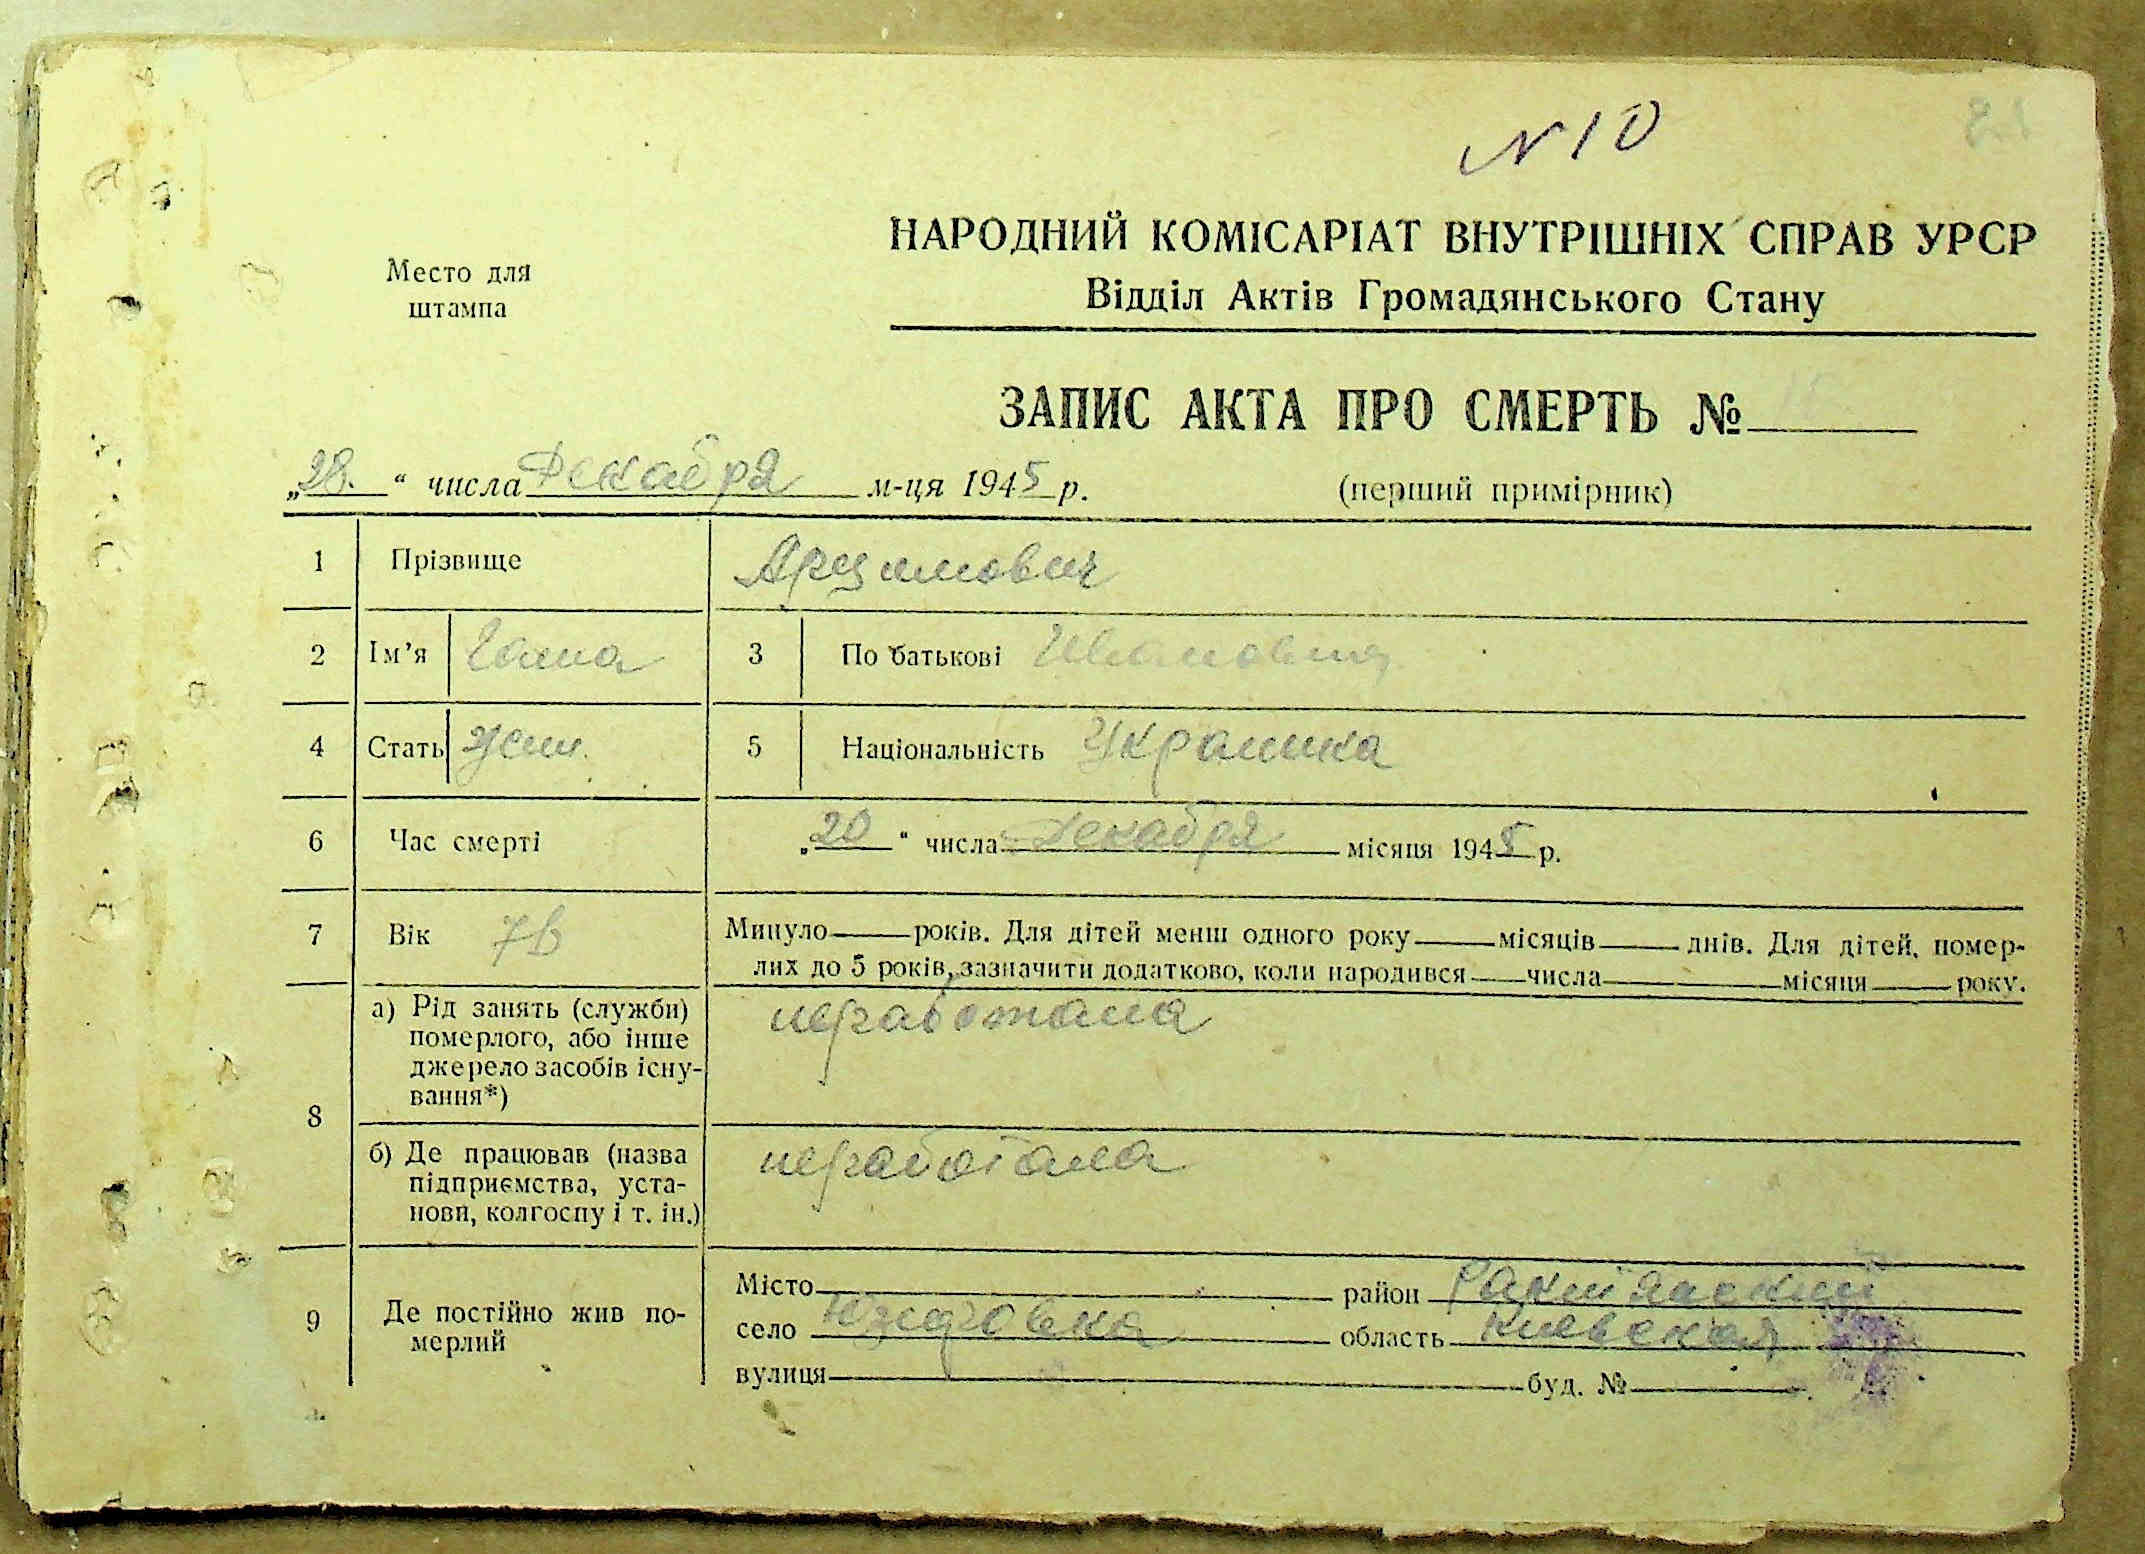 N 10
21
Место для
штампа
НАРОДНИЙ КОМІСАРІАТ ВНУТРІШНІХ СПРАВ УРСР
Відділ Актів Громадянського Стану
ЗАПИС АКТА ПРО СМЕРТЬ №
„28.“ числа Декабря м-ця 1945 р.
(перший примірник)
1 Прізвище Арцимович
2 Ім’я Ганна 3 По батькові Ивановна
4 Стать жен. 5 Національність Украинка
6 Час смерті „20“ числа Декабря місяця 1945 р.
7 Вік Минуло років. Для дітей менш одного року місяців днів. Для дітей, помер-
лих до 5 років, зазначити додатково, коли народився числа місяця року.
8 а) Рід занять (служби)
померлого, або інше
джерело засобів існу-
вання*)
неработала
б) Де працював (назва
підприємства, уста-
нови, колгоспу і т. ін.)
неработала
9 Де постійно жив по-
мерлий
Місто район Ракитянский
село Юзефовка область Киевская
вулиця буд. №